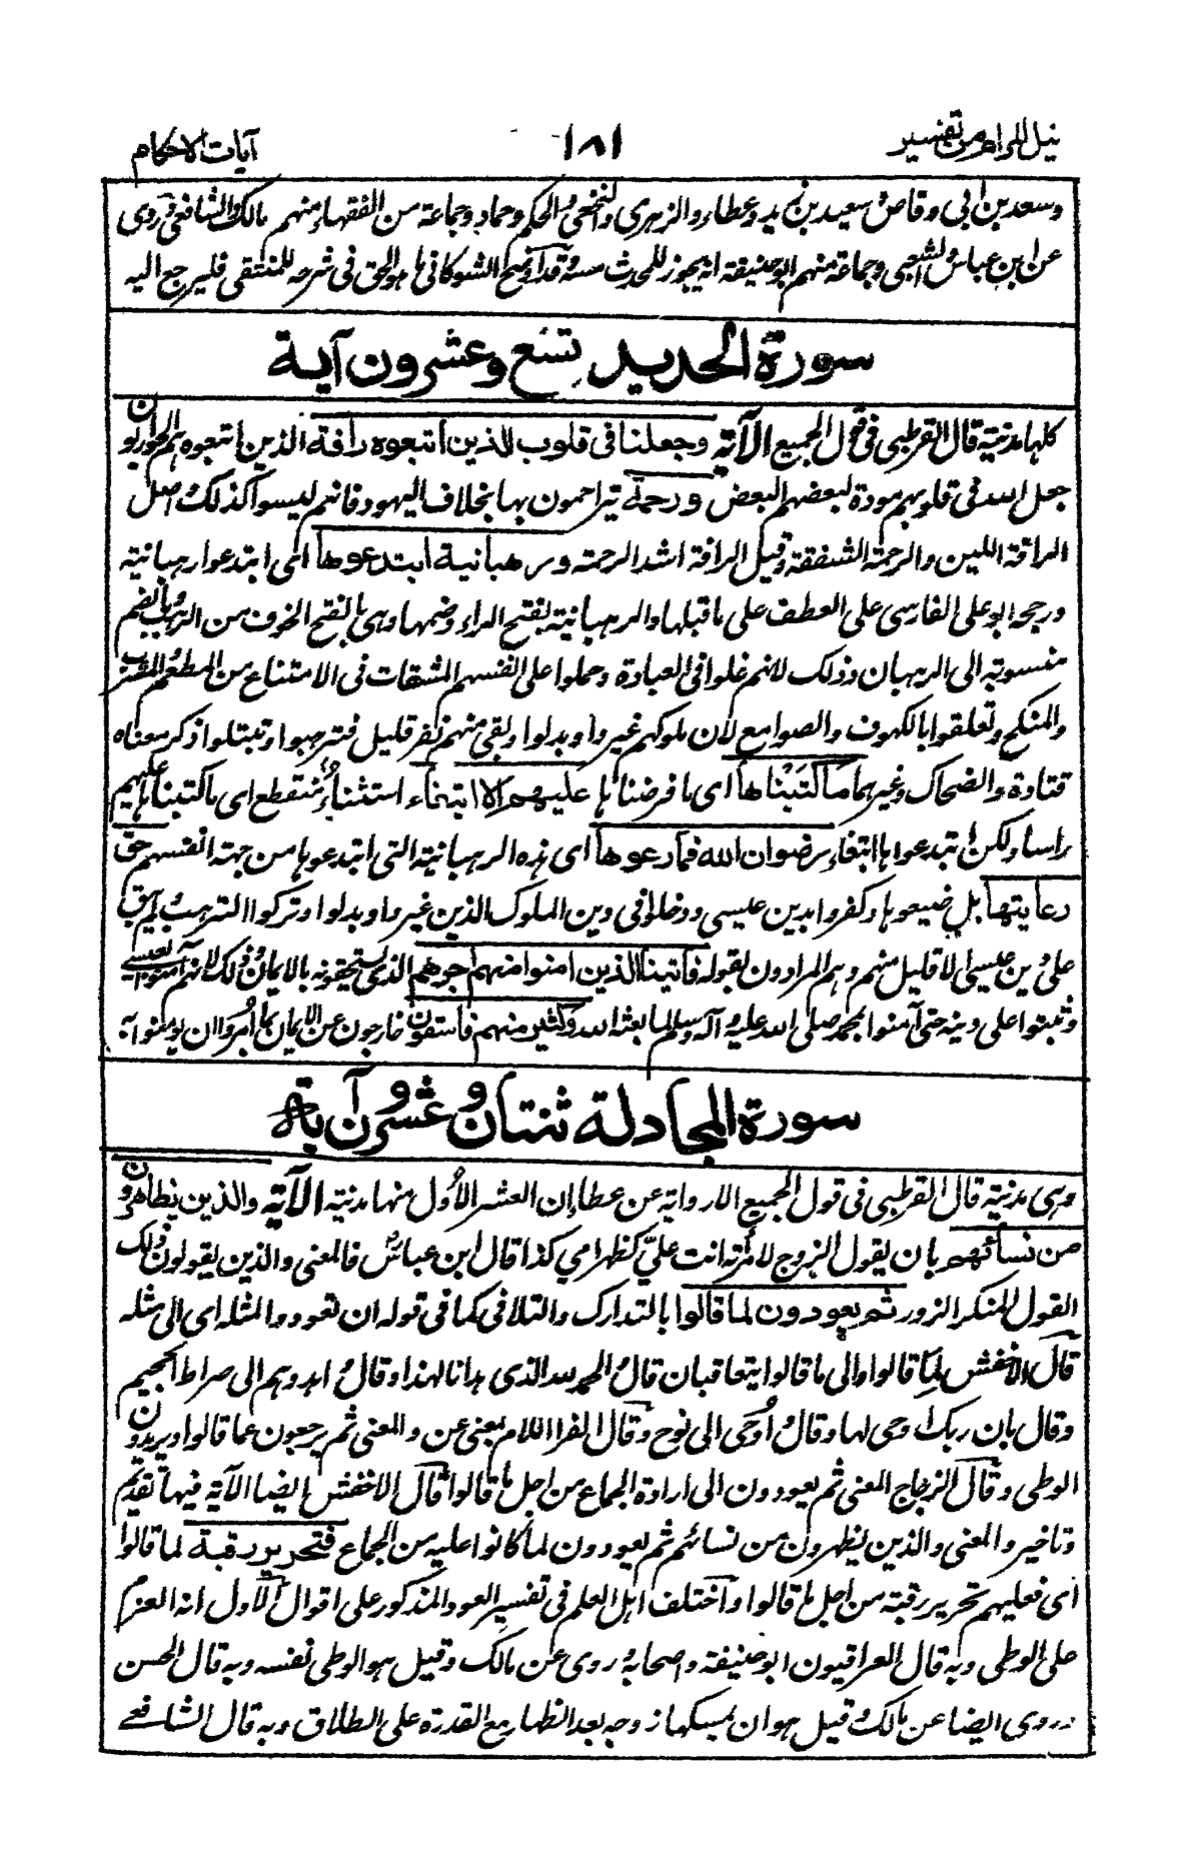 نيل المرام من تفسير
١٨١
آيات الاحكام
وسعد بن ابي وقاص وسعيد بن زيد وعطاء والزهري والنخعي والحكم وحماد وجماعة من الفقهاء منهم مالك والشافعي وروى
عن ابن عباس والشعبي وجماعة منهم ابو حنيفة انه يجوز للمحدث مسه وقد اوضح الشوكاني ما هو الحق في شرحه للمنتقى فليرجع اليه
سورة الحديد تسع وعشرون آية
كلها مدنية قال القرطبي في قول الجميع الآية وجعلنا في قلوب الذين اتبعوه رافة الذين اتبعوه هم الحواريون
جعل الله في قلوبهم مودة لبعضهم البعض ورحمة يتراحمون بها بخلاف اليهود فانهم ليسوا كذلك واصل
الرافة اللين والرحمة الشفقة وقيل الرافة اشد الرحمة ورهبانية ابتدعوها اي ابتدعوا رهبانية
ورجحه ابو علي الفارسي على العطف على ما قبلها والرهبانية بفتح الراء وضمها وهي بالفتح الخوف من الرهب وبالضم
منسوبة الى الرهبان وذلك لانهم غلوا في العبادة وحملوا على انفسهم المشقات في الامتناع من المطعم والمشرب
والمنكح وتعلقوا بالكهوف والصوامع لان ملوكهم غيروا وبدلوا وبقي منهم نفر قليل فترهبوا وتبتلوا ذكر معناه
قتادة والضحاك وغيرهما ما كَتَبْناها اي ما فرضناها عليهم الا ابتغاء استثناءٌ منقطع اي ما كتبناها عليهم
راسا ولكن ابتدعوها ابتغاء رضوان الله فما رعوها اي هذه الرهبانية التي ابتدعوها من جهة انفسهم حق
رعايتها بل ضيعوها وكفروا بدين عيسى ودخلوا في دين الملوك الذين غيروا وبدلوا وتركوا الترهب ولم يبق
على دين عيسى الا قليل منهم وهم المرادون بقوله فآتينا الذين امنوا منهم اجرهم الذي يستحقونه بالايمان وذلك لانهم آمنوا بعيسى
وثبتوا على دينه حتى آمنوا بمحمد صلى الله عليه وآله وسلم لما بعثه الله وكثير منهم فاسقون خارجون عن الايمان بما امروا ان يؤمنوا به
سورة المجادلة ثنتان وعشرون آية
وهي مدنية قال القرطبي في قول الجميع الا رواية عن عطاء ان العشر الأول منها مدنية الآية والذين يظاهرون
من نسائهم بان يقول الزوج لامرأته انت علي كظهر امي كذا قال ابن عباس فالمعنى والذين يقولون ذلك
القول المنكر الزور ثم يعودون لما قالوا بالتدارك والتلافي كما في قوله ان تعودوا لمثله اي الى مثله
قال الاخفش لما قالوا والى ما قالوا يتعاقبان قال الحمد لله الذي هدانا لهذا وقال اهدوهم الى صراط الجحيم
وقال بان ربك اوحى لها وقال اُوحي الى نوح وقال الفرا اللام بمعنى عن والمعنى ثم يرجعون عما قالوا ويريدون
الوطي وقال الزجاج المعنى ثم يعودون الى ارادة الجماع من اجل ما قالوا قال الاخفش ايضا الآية فيها تقديم
وتاخير والمعنى والذين يظهرون من نسائهم ثم يعودون لما كانوا عليه من الجماع فتحرير رقبة لما قالوا
اي فعليهم تحرير رقبة من اجل ما قالوا واختلف اهل العلم في تفسير العود المذكور على اقوال الاول انه العزم
على الوطي وبه قال العراقيون ابو حنيفة واصحابه وروى عن مالك وقيل هو الوطي نفسه وبه قال الحسن
وروى ايضا عن مالك وقيل هو ان يمسكها زوجه بعد الظهار مع القدرة على الطلاق وبه قال الشافعي